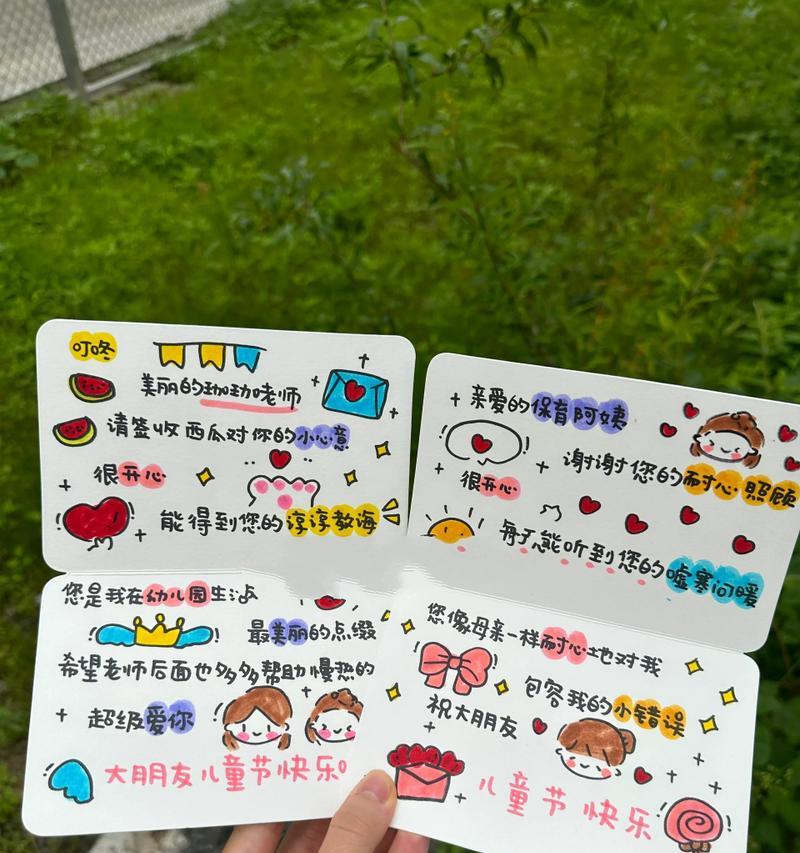 叮咚
美丽的珈珈老师
请签收西瓜对你的小心意
很开心
能得到您的谆谆教海
您是我在幼儿园生活
最美丽的点缀
希望老师后面也多多帮助慢热的
超级爱你
大朋友儿童节快乐
亲爱的保育阿姨
谢谢您的耐心照顾
很开心
每天能听到您的嘘寒问暖
您像母亲一样耐心地对我
包容我的小错误
祝大朋友
儿童节快乐